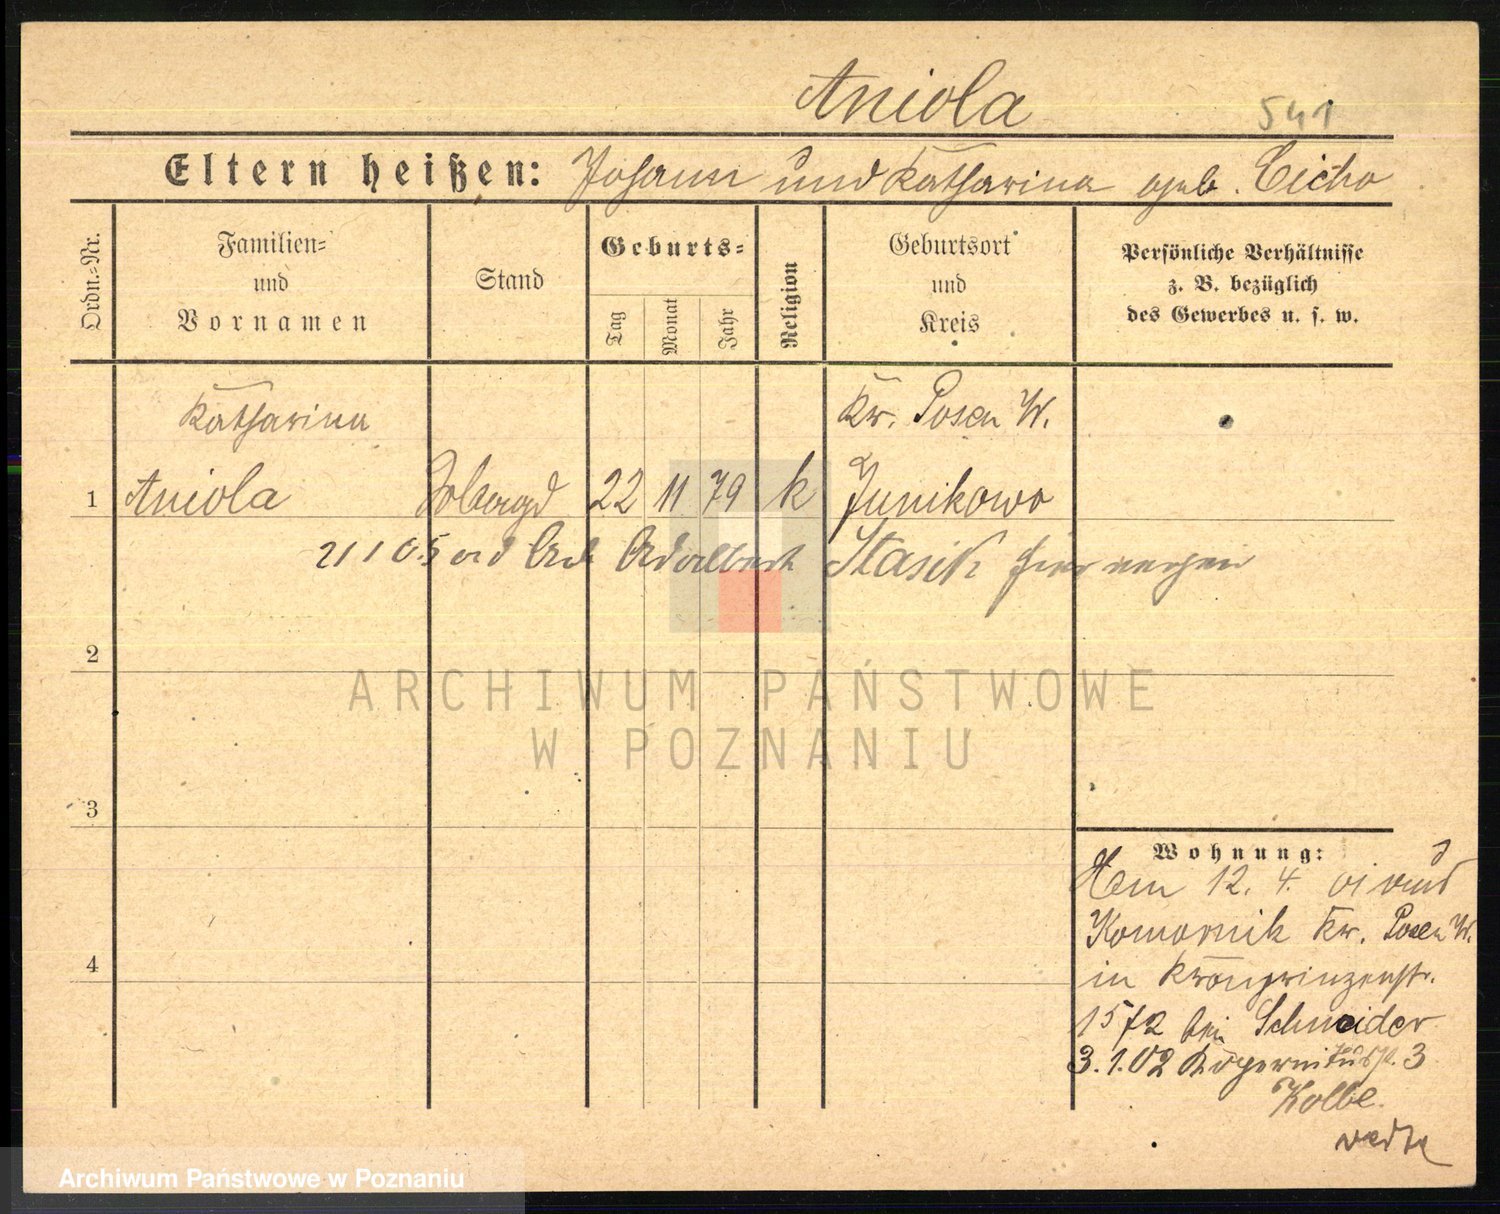 Aniola
541
Eltern heißen: Johann und Katharina geb. Cicho
Ordn.=Nr.
Familien=
und
Vornamen
Stand
Geburts=
Tag
Monat
Jahr
Religion
Geburtsort
und
Kreis
Persönliche Verhältnisse
z. B. bezüglich
des Gewerbes u. s. w.
Katharina
Kr. Posen W.
1 Aniola 22 11 79 k Junikowo
21 1 05 Adalbert Stasik
2
ARCHIWUM PAŃSTWOWE
W POZNANIU
3
Wohnung:
12. 4. 01
Komornik Kr. Posen W.
in Kronprinzenstr.
bei Schneider
3.1.02 3
Kolbe
4
Archiwum Państwowe w Poznaniu